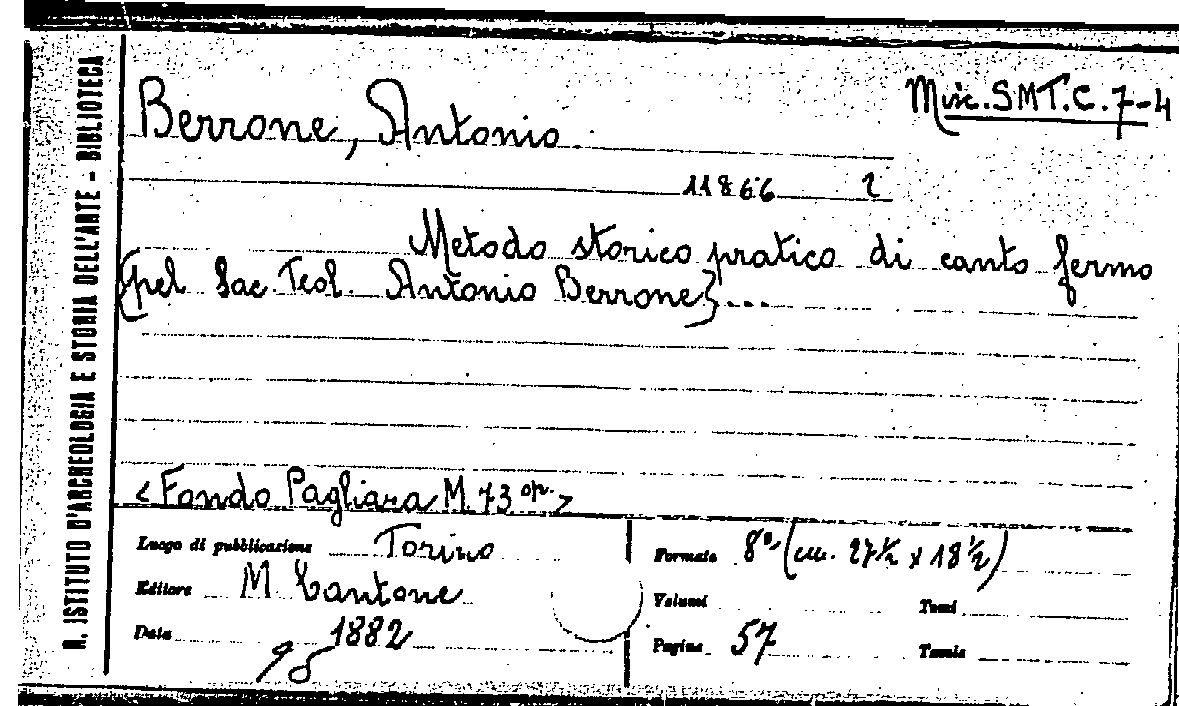 R. ISTITUTO D'ARCHEOLOGIA E STORIA DELL'ARTE - BIBLIOTECA
Misc. SMT. C. 7-4
Berrone, Antonio.
11866 2
Metodo storico pratico di canto fermo
{pel Sac. Teol. Antonio Berrone}...
< Fondo Pagliara M. 73 op. >
Luogo di pubblicazione Torino
Editore M. Cantone
Data 1882
Formato 8° (cm. 27 ½ x 18 ½)
Volumi Tomi
Pagine 57 Tavole